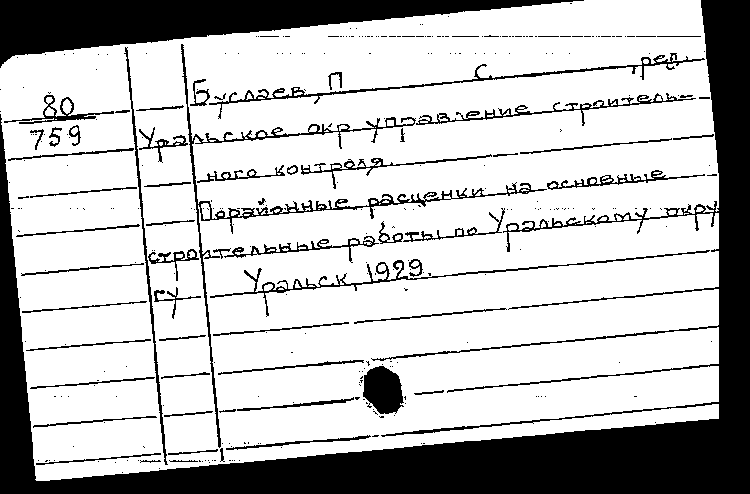 Буслаев, П С. , ред.
80
759
Уральское окр управление строитель-
ного контроля.
Порайонные расценки на основные
строительные работы по Уральскому окру
гу Уральск, 1929.